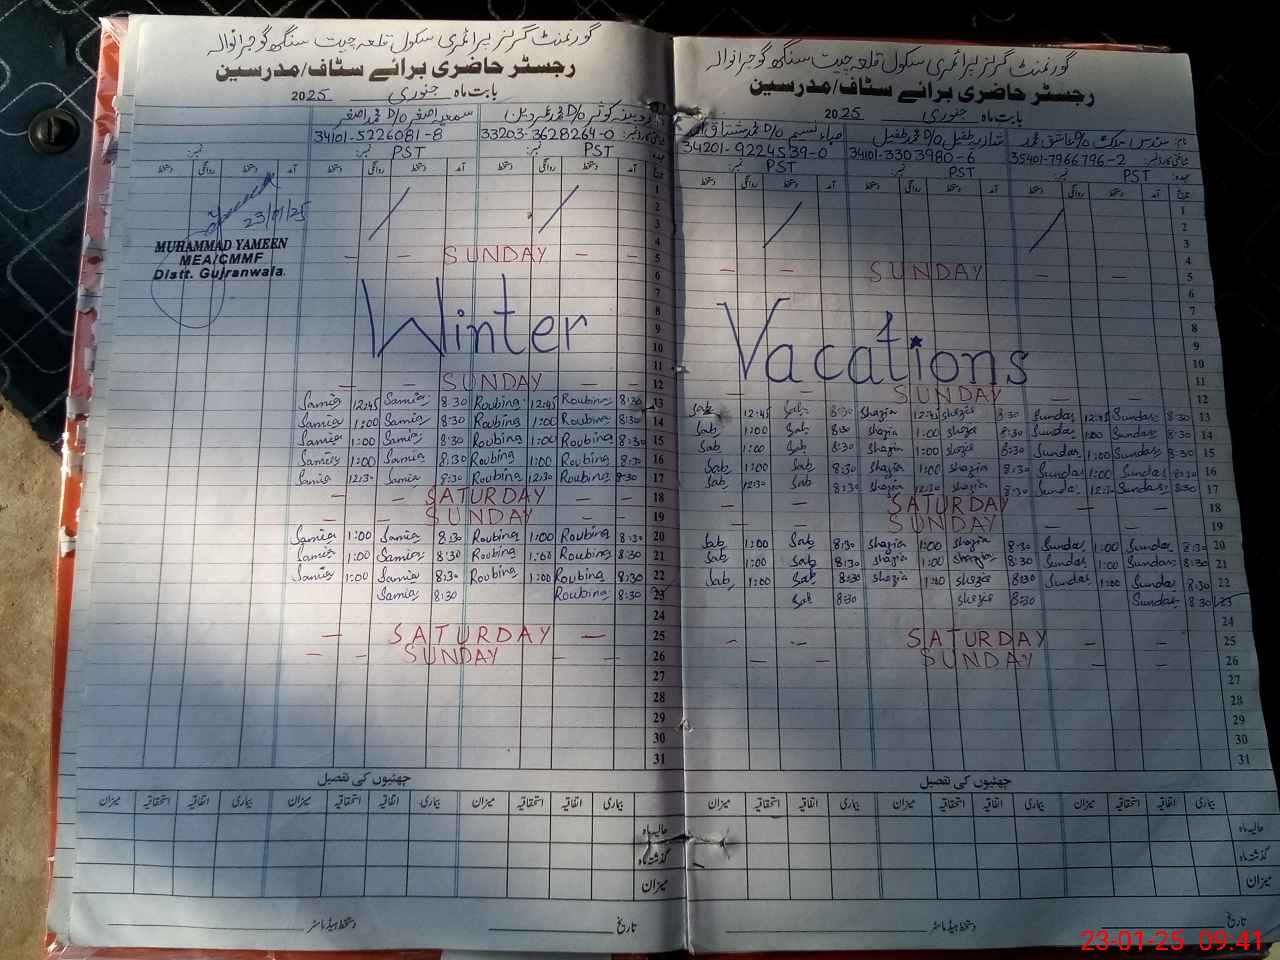 گورنمنٹ گرلز پرائمری سکول قلعہ چیت سنگھ گوجرانوالہ
رجسٹر حاضری برائے سٹاف/مدرسین
بابت ماہ جنوری 2025
روبینہ کوثر D/O محمد دین سمعیہ اصغر D/O محمد اصغر
33203-3628264-0 34101-5226081-8
PST PST
23/01/25
MUHAMMAD YAMEEN
MEA/CMMF
Distt. Gujranwala.
1
2
3
4
5 SUNDAY
6
7
8
9
Winter
10
11
12 SUNDAY
Samia 12:45 Samia 8:30 Roubina 12:45 Roubina 8:30 13
Samia 1:00 Samia 8:30 Roubina 1:00 Roubina 8:30 14
Samia 1:00 Samia 8:30 Roubina 1:00 Roubina 8:30 15
Samia 1:00 Samia 8:30 Roubina 1:00 Roubina 8:30 16
Samia 12:30 Samia 8:30 Roubina 12:30 Roubina 8:30 17
SATURDAY 18
SUNDAY 19
Samia 1:00 Samia 8:30 Roubina 1:00 Roubina 8:30 20
Samia 1:00 Samia 8:30 Roubina 1:00 Roubina 8:30 21
Samia 1:00 Samia 8:30 Roubina 1:00 Roubina 8:30 22
Samia 8:30 Roubina 8:30 23
24
SATURDAY 25
SUNDAY 26
27
28
29
30
31
چھٹیوں کی تفصیل
بیماری اتفاقیہ استحقاقیہ میزان بیماری اتفاقیہ استحقاقیہ میزان بیماری اتفاقیہ استحقاقیہ میزان
حالیہ ماہ
گذشتہ ماہ
میزان
تاریخ دستخط ہیڈ ماسٹر
گورنمنٹ گرلز پرائمری سکول قلعہ چیت سنگھ گوجرانوالہ
رجسٹر حاضری برائے سٹاف/مدرسین
بابت ماہ جنوری 2025
D/O عاشق محمد شازیہ طفیل D/O محمد طفیل صباء نسیم D/O محمد مشتاق
35401-7966796-2 34101-3303980-6 34201-9224539-0
PST PST PST
1
2
3
4
SUNDAY 5
6
7
8
9
Vacations
10
11
SUNDAY 12
Sab 12:45 Sab 8:30 Shazia 12:45 Shazia 8:30 Sundas 12:45 Sundas 8:30 13
Sab 1:00 Sab 8:30 Shazia 1:00 Shazia 8:30 Sundas 1:00 Sundas 8:30 14
Sab 1:00 Sab 8:30 Shazia 1:00 Shazia 8:30 Sundas 1:00 Sundas 8:30 15
Sab 1:00 Sab 8:30 Shazia 1:00 Shazia 8:30 Sundas 1:00 Sundas 8:30 16
Sab 12:30 Sab 8:30 Shazia 12:30 Shazia 8:30 Sundas 12:30 Sundas 8:30 17
SATURDAY 18
SUNDAY 19
Sab 1:00 Sab 8:30 Shazia 1:00 Shazia 8:30 Sundas 1:00 Sundas 8:30 20
Sab 1:00 Sab 8:30 Shazia 1:00 Shazia 8:30 Sundas 1:00 Sundas 8:30 21
Sab 1:00 Sab 8:30 Shazia 1:00 Shazia 8:30 Sundas 1:00 Sundas 8:30 22
Sab 8:30 Shazia 8:30 Sundas 8:30 23
24
SATURDAY 25
SUNDAY 26
27
28
29
30
31
چھٹیوں کی تفصیل
بیماری اتفاقیہ استحقاقیہ میزان بیماری اتفاقیہ استحقاقیہ میزان بیماری اتفاقیہ استحقاقیہ میزان
حالیہ ماہ
گذشتہ ماہ
میزان
تاریخ دستخط ہیڈ ماسٹر
23-01-25 09:41